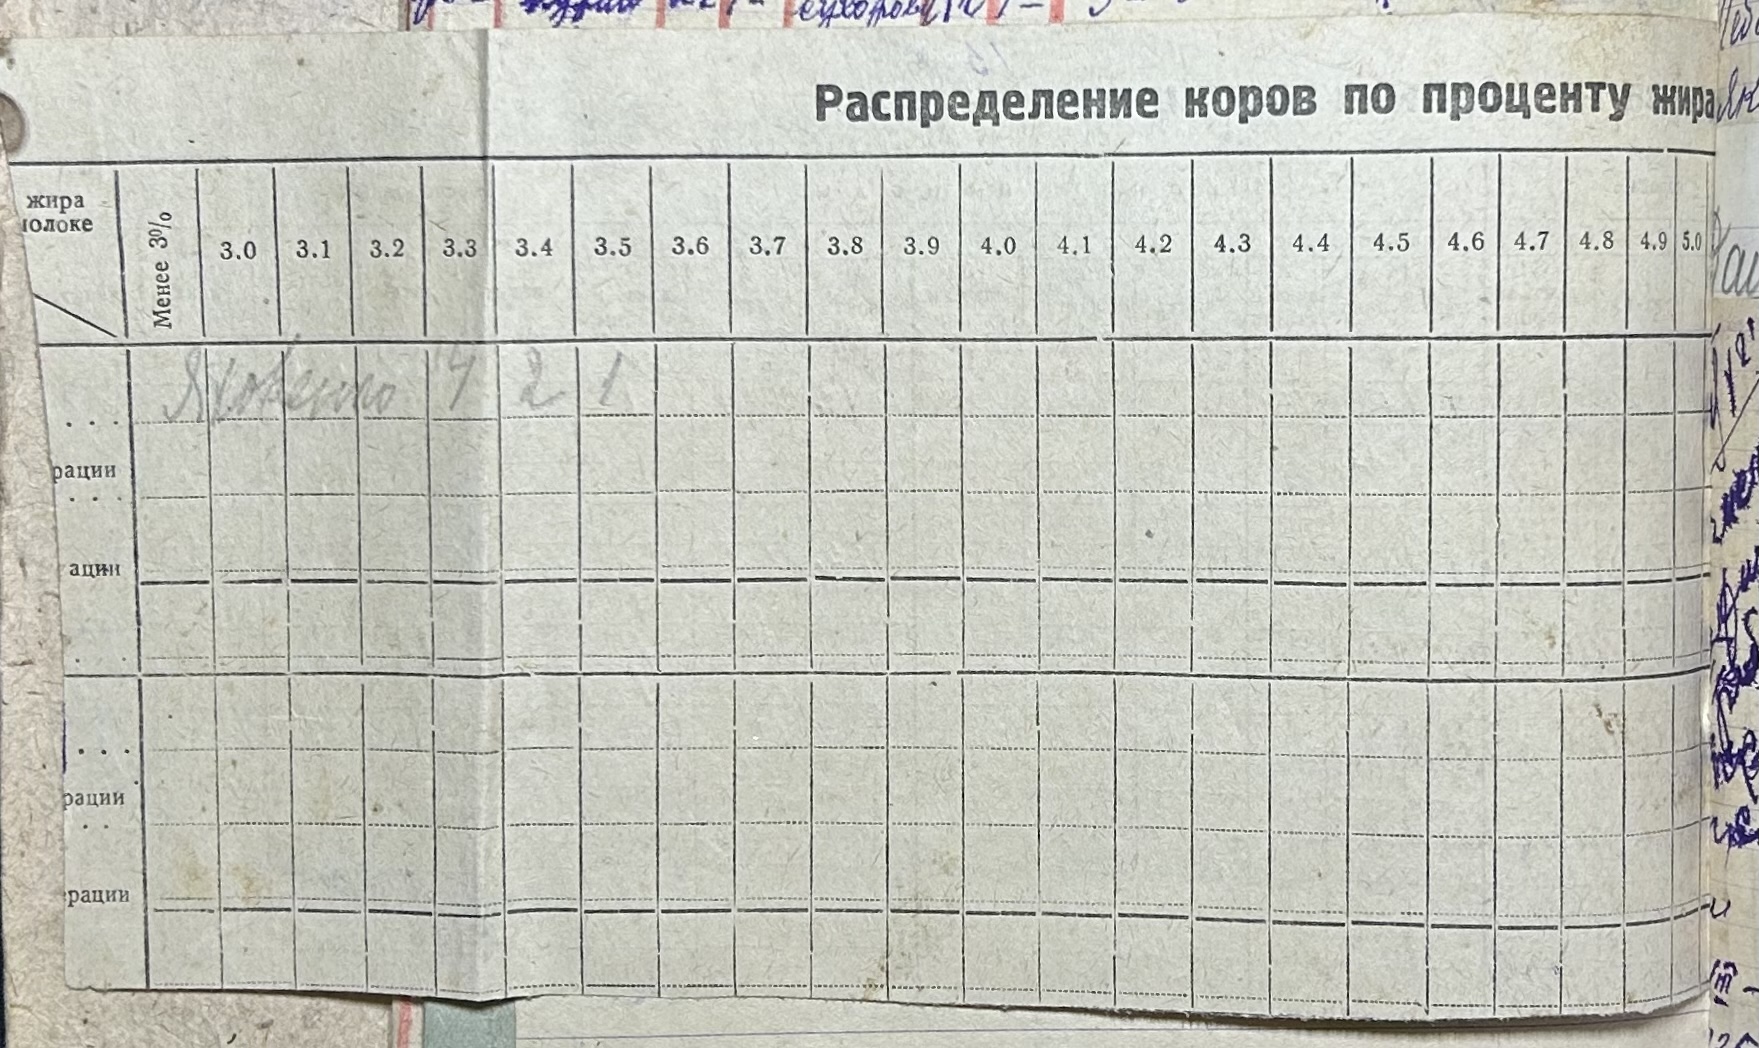 Распределение коров по проценту жира
жира
молоке
Менее 3%
3.0 3.1 3.2 3.3 3.4 3.5 3.6 3.7 3.8 3.9 4.0 4.1 4.2 4.3 4.4 4.5 4.6 4.7 4.8 4.9 5.0
Яковенко 4 2 1
. . .
рации
. . .
ации
. . .
. . .
рации
. .
ерации